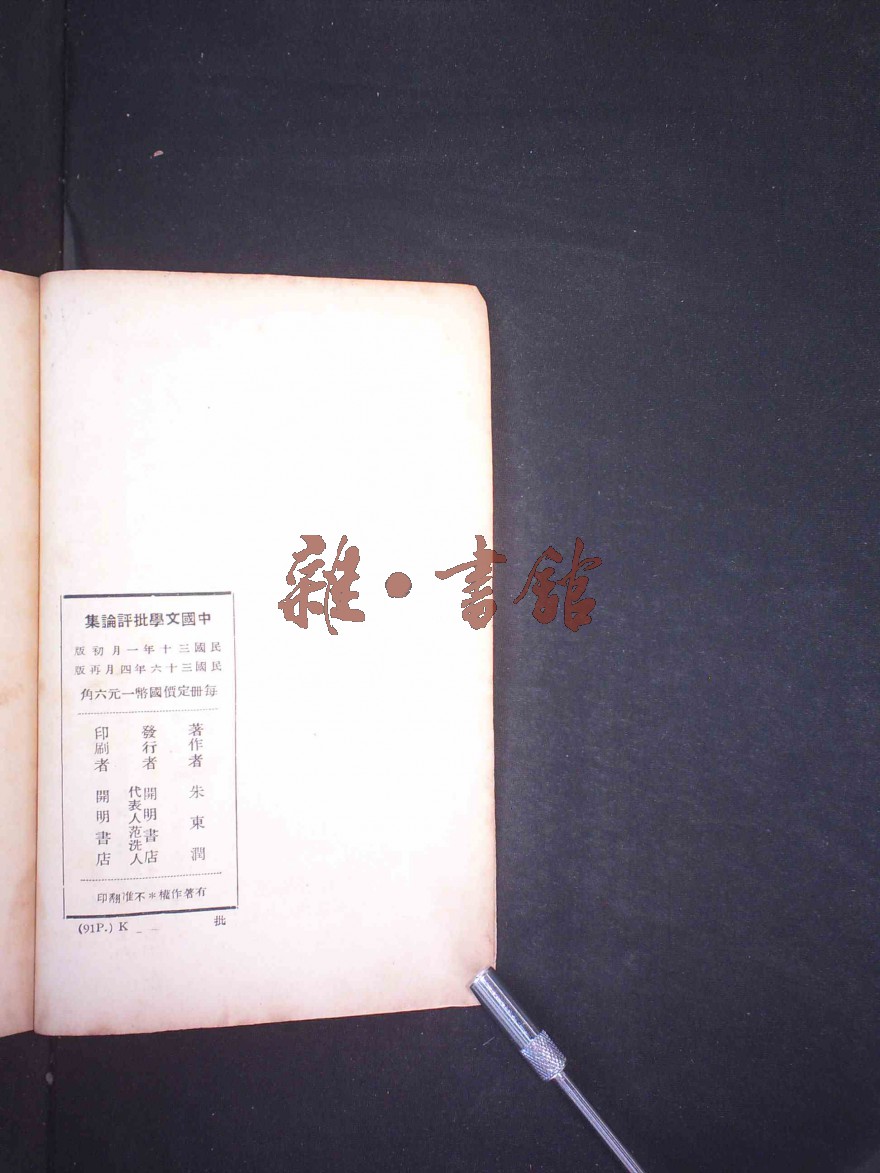 中國文學批評論集
民國三十年一月初版
民國三十六年四月再版
每冊定價國幣一元六角
著作者 朱東潤
發行者 開明書店
代表人范洗人
印刷者 開明書店
有著作權*不准翻印
(91P.) K
批
雜·書館